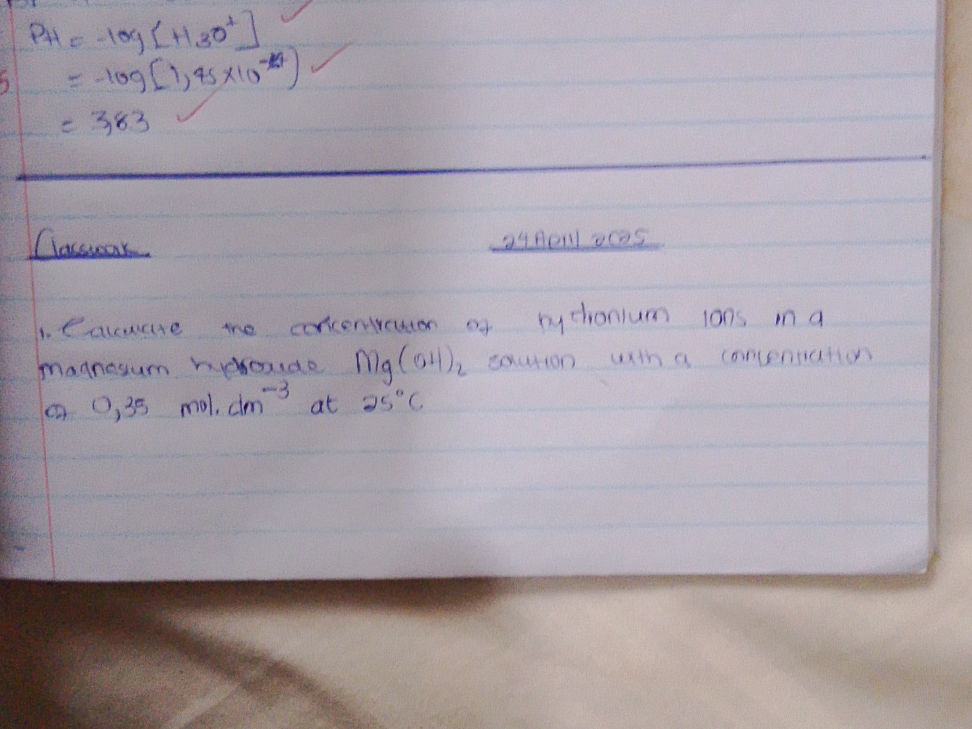 PH = -log [H3O⁺]
= -log [1,45 x10⁻⁴)
= 3,83
Classwork
24 April 2025
1. Calculate the concentration of hydronium ions in a
magnesium hydroxide Mg(OH)₂ solution with a concentration
of 0,35 mol. dm⁻³ at 25°C